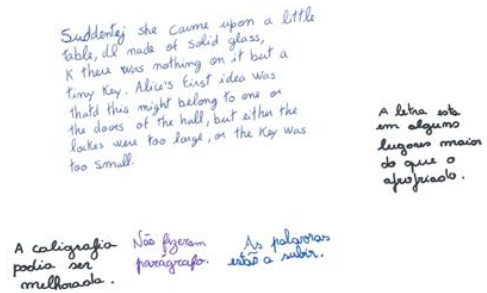 Suddentej she came upon a little
table, dll made of solid glass,
K there was nothing on it but a
tiny key. Alice's first idea was
thatd this might belong to one or
the doors of the hall, but either the
lockes were too large, or the key was
too small.
A letra esta
em alguns
lugares maior
do que o
apropriado.
A caligrafia
podia ser
melhorada.
Não fizeram
parágrafo.
As palavras
estão a subir.